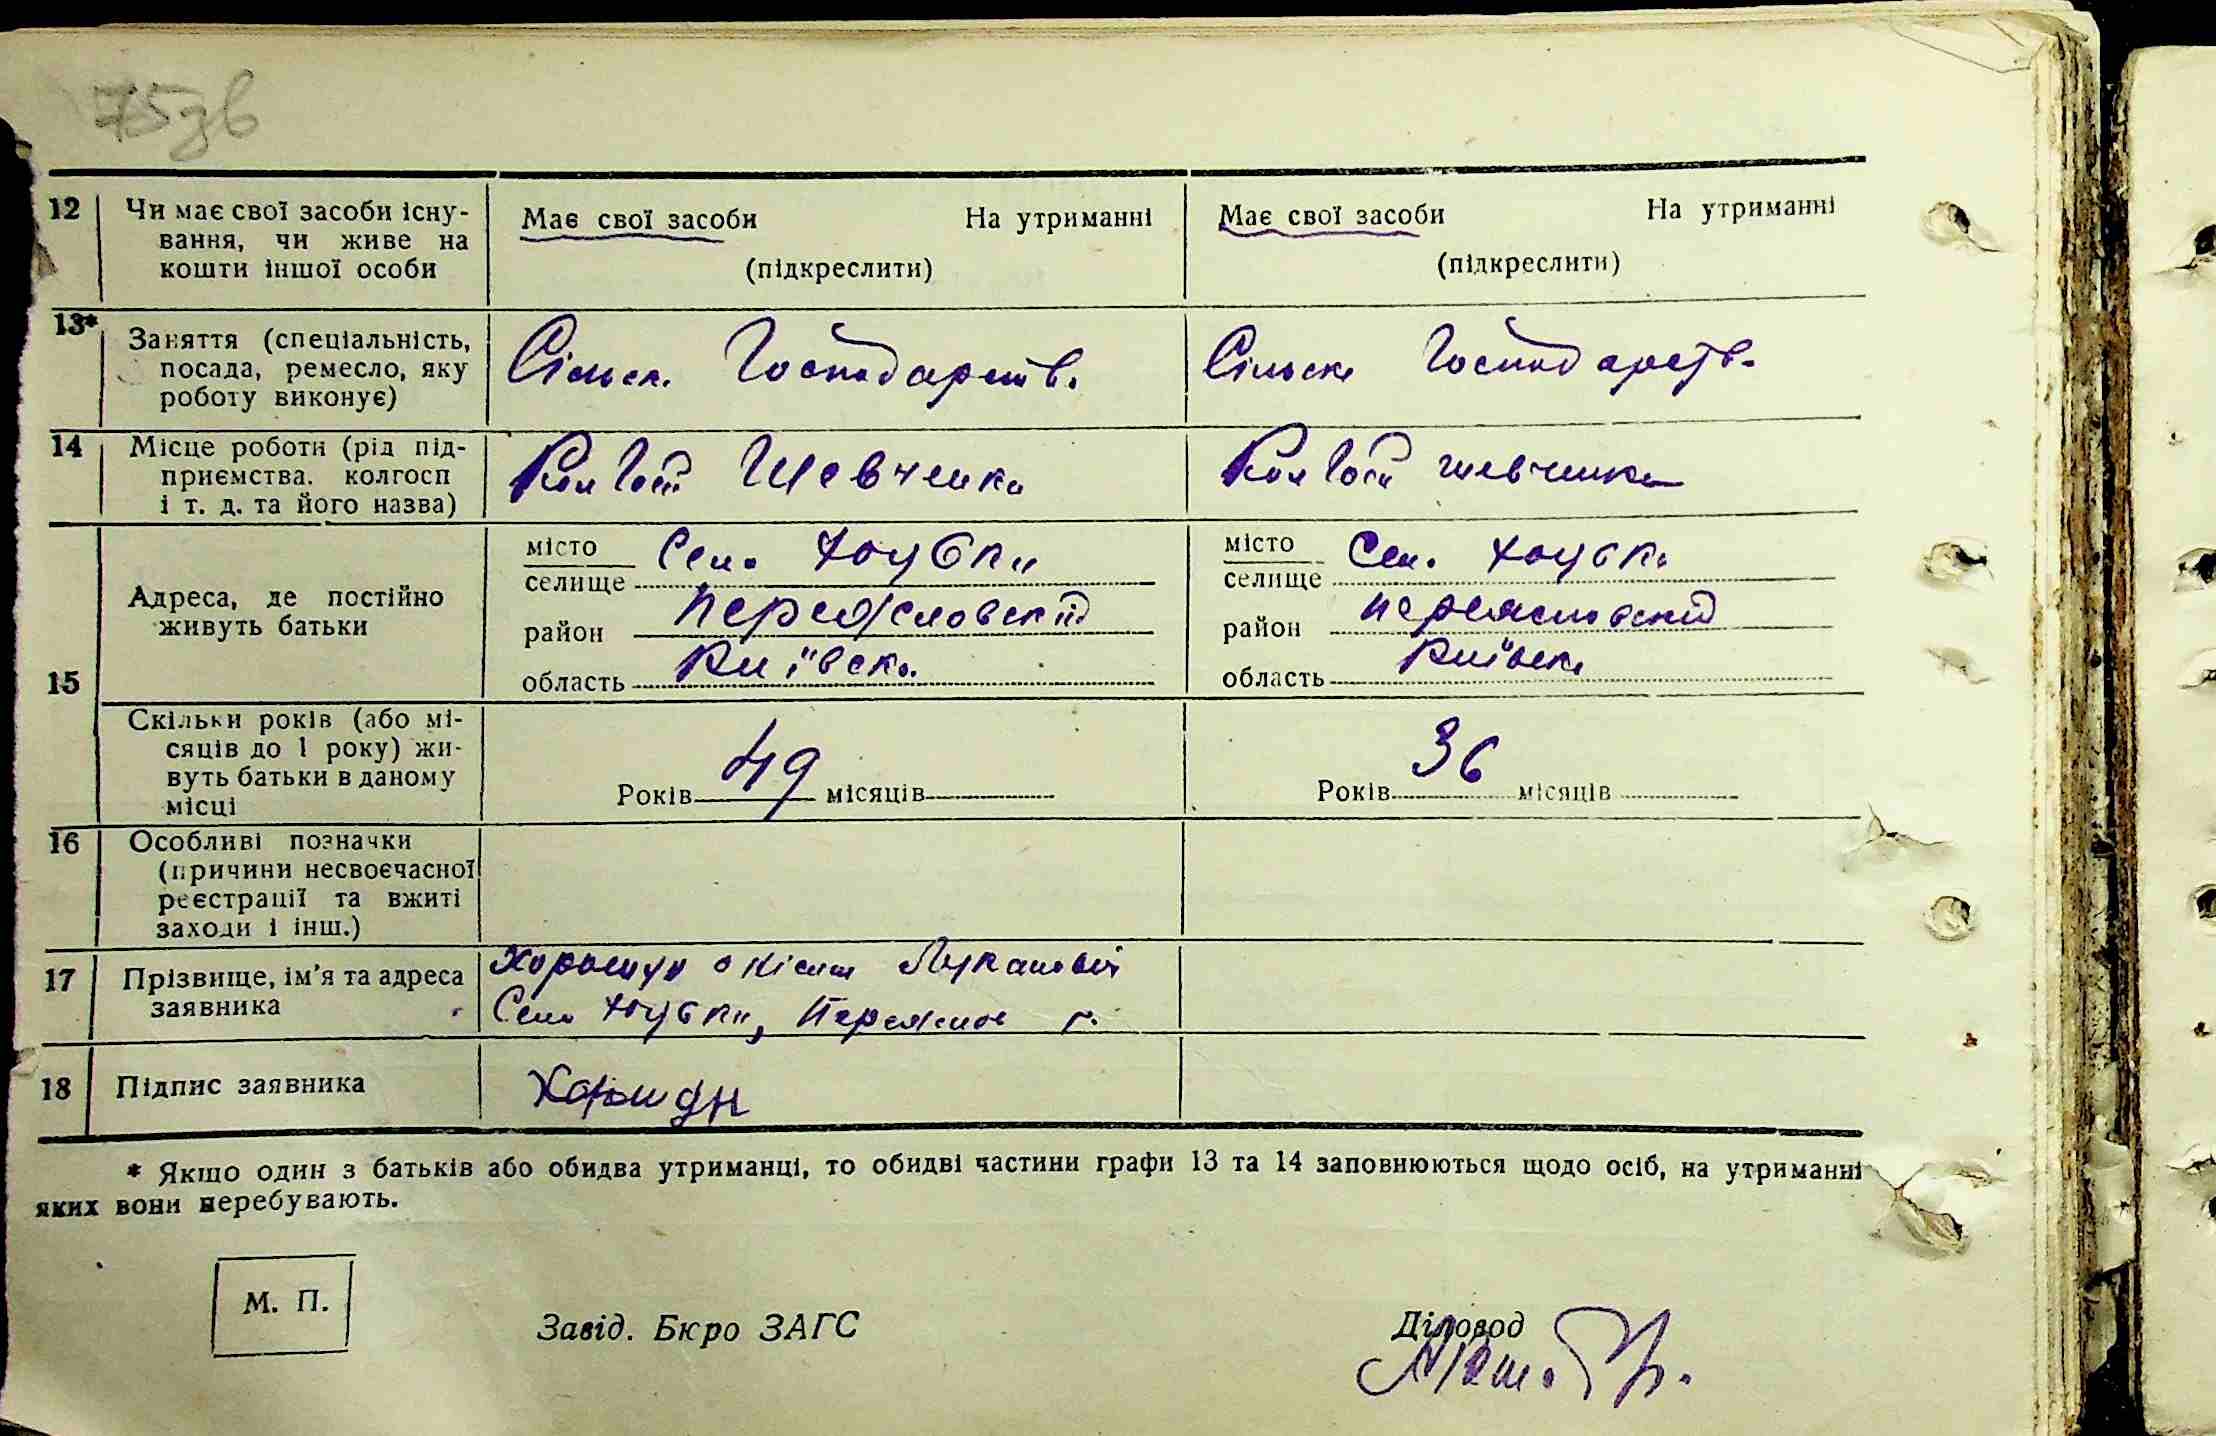 75зв
12 Чи має свої засоби існу-
вання, чи живе на
кошти іншої особи
Має свої засоби На утриманні
(підкреслити)
Має свої засоби На утриманні
(підкреслити)
13* Заняття (спеціальність,
посада, ремесло, яку
роботу виконує)
Сільск. Господарств.
Сільске Господарств.
14 Місце роботи (рід під-
приємства. колгосп
і т. д. та його назва)
Колгосп Шевченка
Колгосп Шевченка
15 Адреса, де постійно
живуть батьки
місто
селище Сел.
район Переясловский
область Київска
місто
селище Сел.
район Переясловский
область Київска
Скільки років (або мі-
сяців до 1 року) жи-
вуть батьки в даному
місці
Років 49 місяців
Років 36 місяців
16 Особливі позначки
(причини несвоєчасної
реєстрації та вжиті
заходи і інш.)
17 Прізвище, ім'я та адреса
заявника
Лукапович
Село
18 Підпис заявника
* Якщо один з батьків або обидва утриманці, то обидві частини графи 13 та 14 заповнюються щодо осіб, на утриманні
яких вони перебувають.
М. П.
Завід. Бюро ЗАГС
Діловод